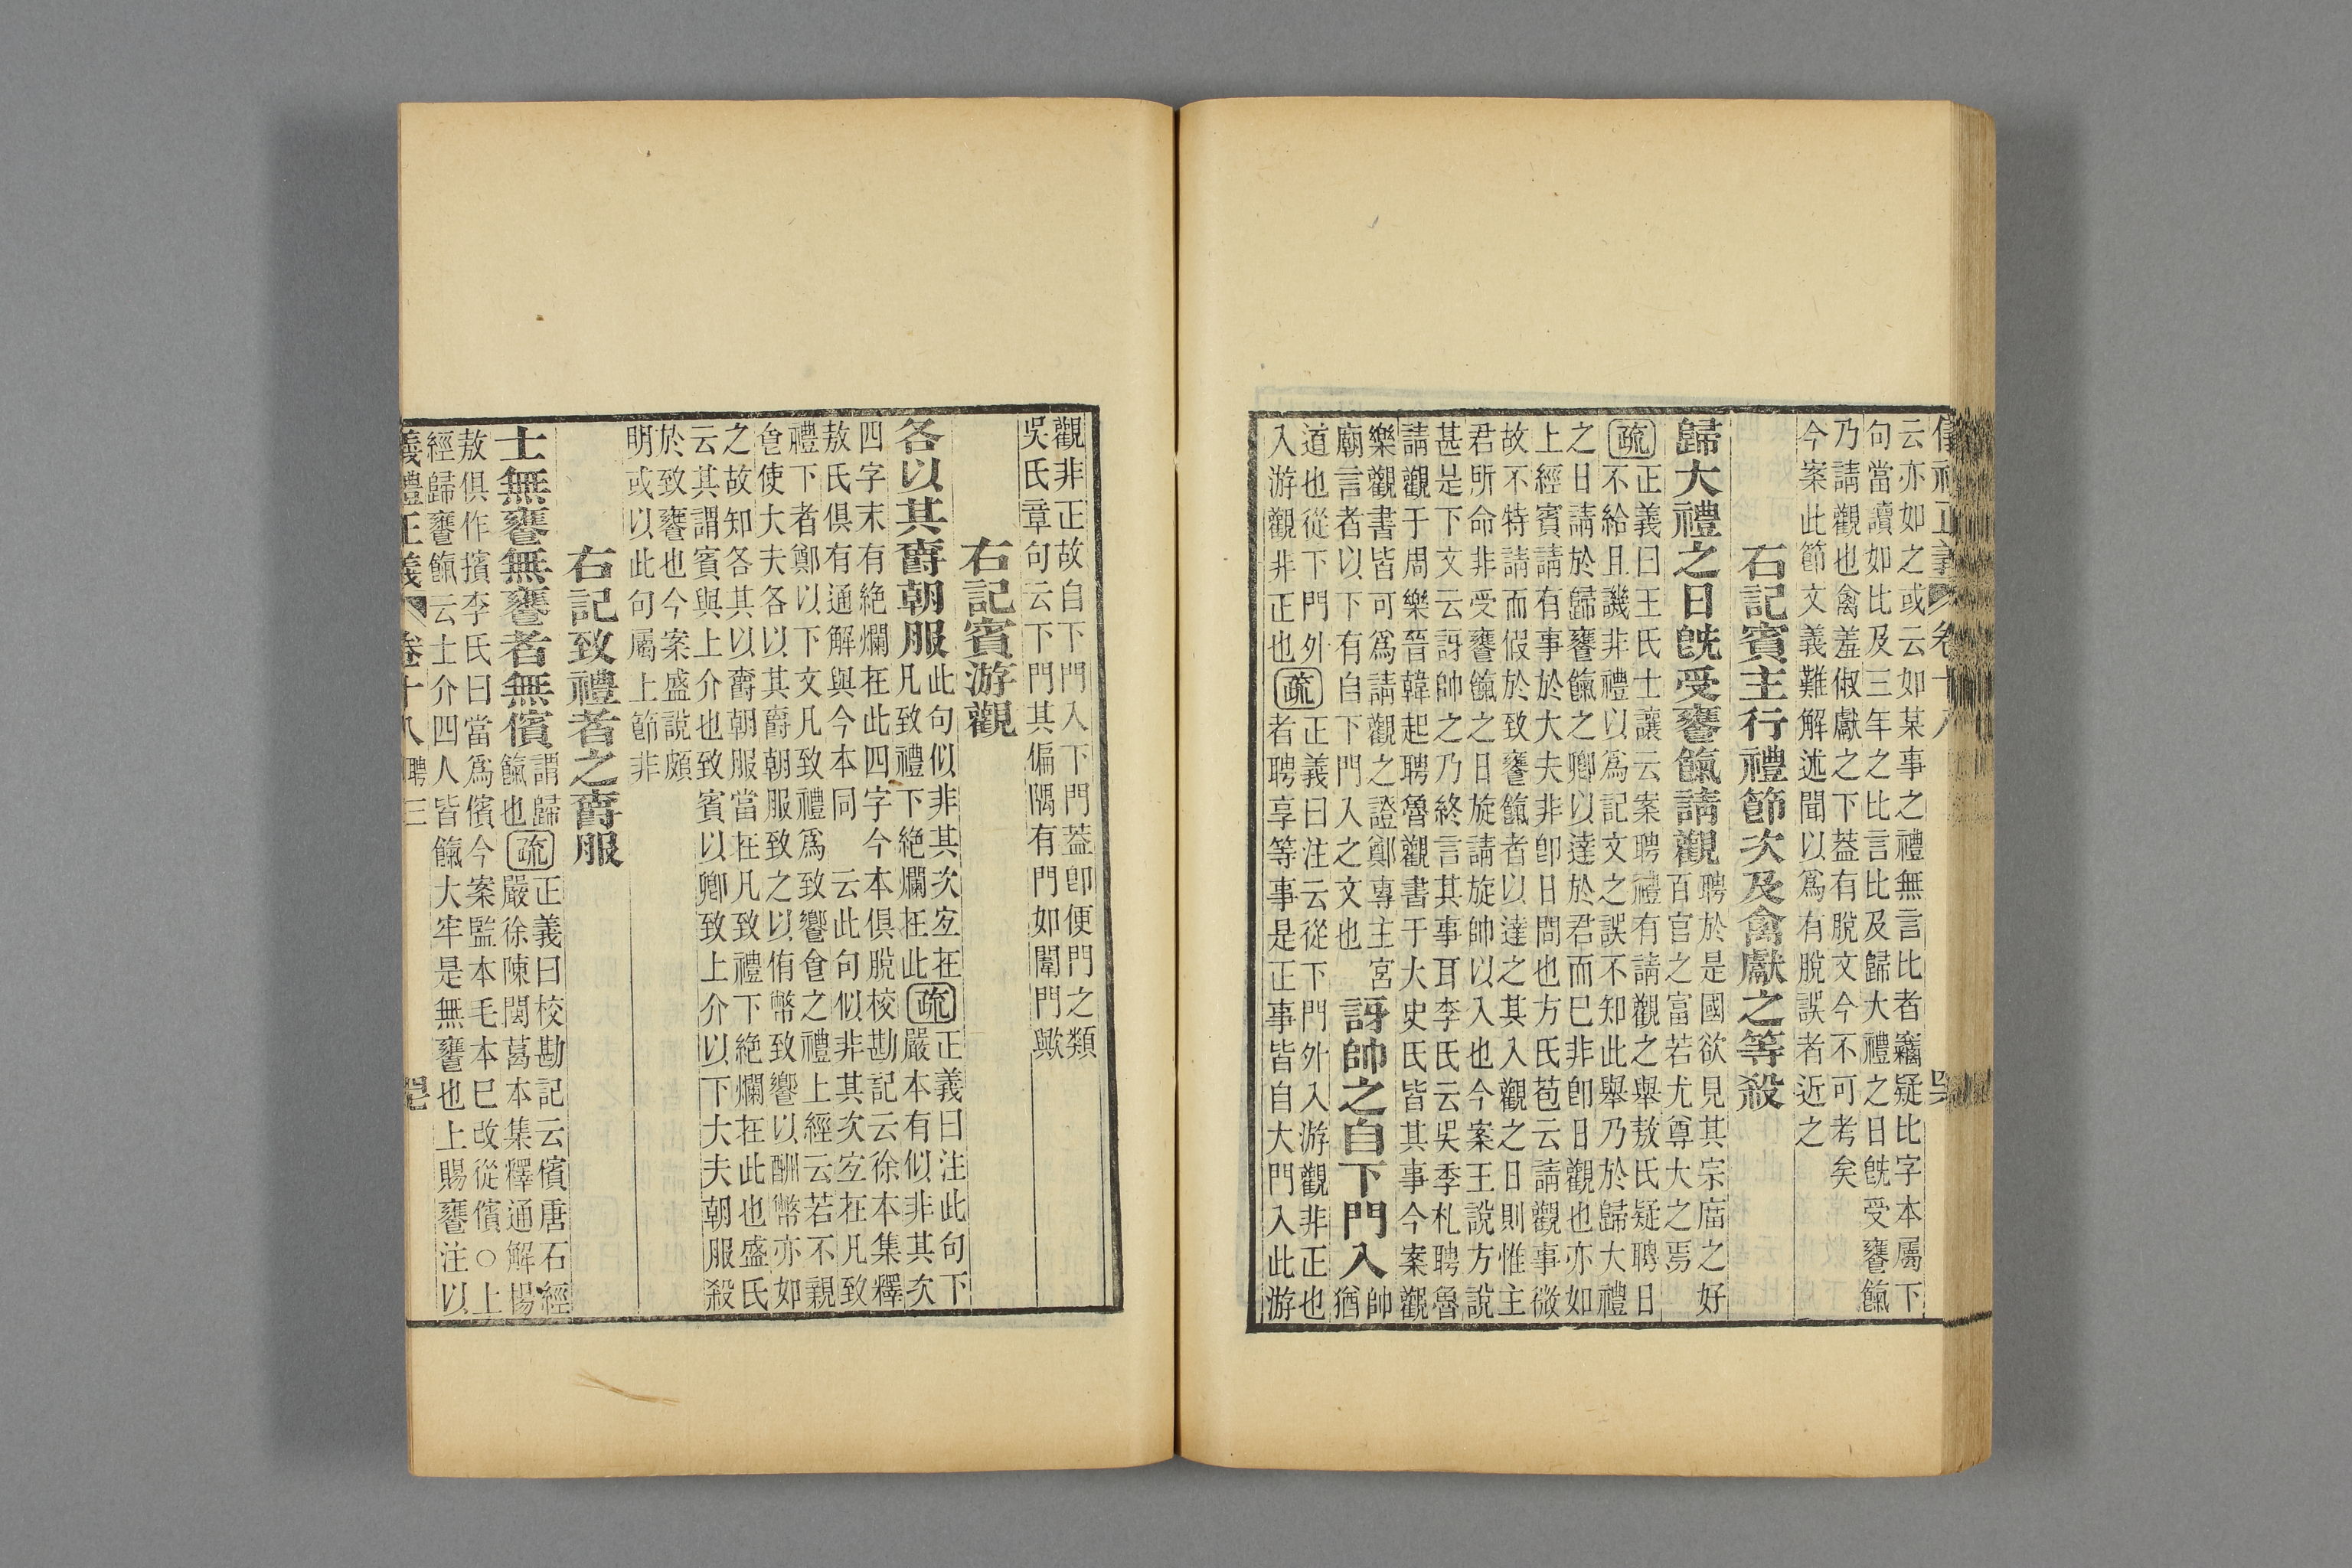 云亦如之或云如某事之禮無言比者竊疑比字本屬下
句當讀如比及三年之比言比及歸大禮之日旣受饔餼
乃請觀也禽羞俶獻之下葢有脫文今不可考矣
今案此節文義難解述聞以爲有脫誤者近之
右記賓主行禮節次及禽獻之等殺
歸大禮之日旣受饔餼請觀
聘於是國欲見其宗廟之好
百官之富若尤尊大之焉
疏
正義曰王氏士讓云案聘禮有請觀之舉敖氏疑聘日
不給且譏非禮以爲記文之誤不知此舉乃於歸大禮
之日請於歸饔餼之卿以達於君而已非卽日觀也亦如
上經賓請有事於大夫非卽日問也方氏苞云請觀事微
故不特請而假於致饔餼者以達之其入觀之日則惟主
君所命非受饔餼之日旋請旋帥以入也今案王說方說
甚是下文云訝帥之乃終言其事耳李氏云吳季札聘魯
請觀于周樂晉韓起聘魯觀書于大史氏皆其事今案觀
樂觀書皆可爲請觀之證鄭專主宮
廟言者以下有自下門入之文也
訝帥之自下門入
帥猶
道也從下門外
入游觀非正也
疏
正義曰注云從下門外入游觀非正也
者聘享等事是正事皆自大門入此游
觀非正故自下門入下門葢卽便門之類
吳氏章句云下門其偏隅有門如闈門歟
右記賓游觀
各以其爵朝服
此句似非其次宐在
凡致禮下絶爛在此
疏
正義曰注此句下
嚴本有似非其次
四字末有絶爛在此四字今本俱脫校勘記云徐本集釋
敖氏俱有通解與今本同 云此句似非其次宐在凡致
禮下者鄭以下文凡致禮爲致饗食之禮上經云若不親
食使大夫各以其爵朝服致之以侑幣致饗以酬幣亦如
之故知各其以爵朝服當在凡致禮下絶爛在此也盛氏
云其謂賓與上介也致賓以卿致上介以下大夫朝服殺
於致饔也今案盛說頗
明或以此句屬上節非
右記致禮者之爵服
士無饔無饔者無儐
謂歸
餼也
疏
正義曰校勘記云儐唐石經
嚴徐陳閩葛本集釋通解楊
敖俱作擯李氏曰當爲儐今案監本毛本已改從儐○上
經歸饔餼云士介四人皆餼大牢是無饔也上賜饔注以
義禮正義 卷十八 聘三